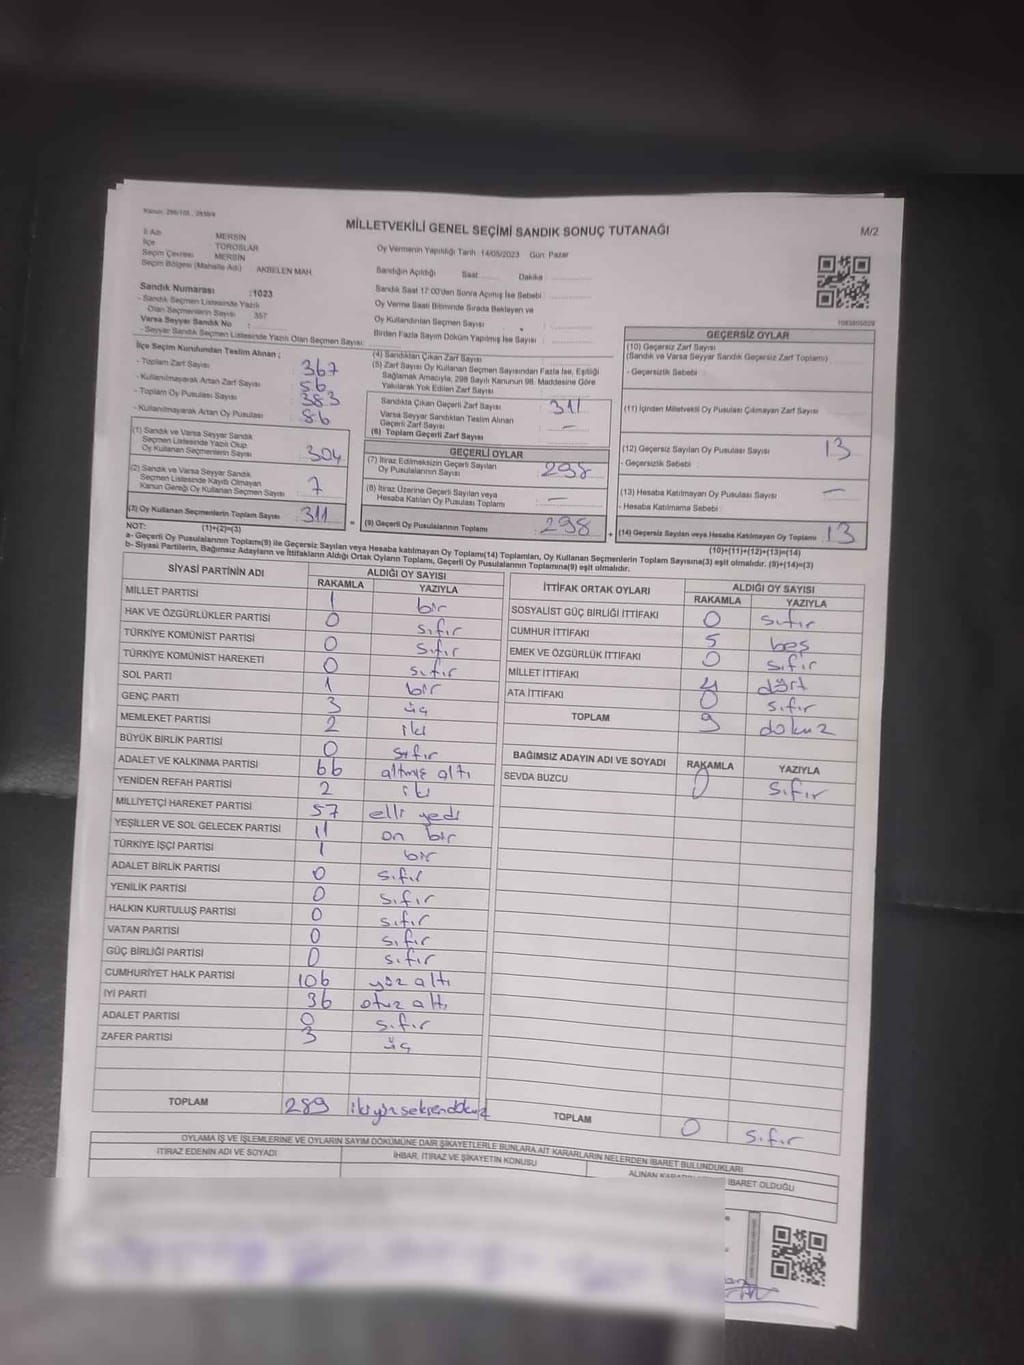 MİLLETVEKİLİ GENEL SEÇİMİ SANDIK SONUÇ TUTANAĞI
M/2
İl Adı : MERSİN
İlçe : TOROSLAR
Seçim Çevresi : MERSİN
Seçim Bölgesi (Mahalle Adı) : AKBELEN MAH.
Oy Vermenin Yapıldığı Tarih : 14/05/2023 Gün: Pazar
Sandığın Açıldığı Saat: Dakika:
Sandık Numarası :1023
- Sandık Seçmen Listesinde Yazılı Olan Seçmenlerin Sayısı : 357
Varsa Seyyar Sandık No :
- Seyyar Sandık Seçmen Listesinde Yazılı Olan Seçmen Sayısı:
Sandık 17:00'den Sonra Açılmış İse Sebebi :
Oy Verme Saati Bitiminde Sırada Bekleyen ve
Oy Kullandırılan Seçmen Sayısı :
Birden Fazla Sayım Döküm Yapılmış İse Sayısı :
İlçe Seçim Kurulundan Teslim Alınan ;
- Toplam Zarf Sayısı : 367
- Kullanılmayarak Artan Zarf Sayısı : 56
- Toplam Oy Pusulası Sayısı : 383
- Kullanılmayarak Artan Oy Pusulası : 86
(1) Sandık ve Varsa Seyyar Sandık
Seçmen Listesinde Yazılı Olup
Oy Kullanan Seçmenlerin Sayısı : 304
(2) Sandık ve Varsa Seyyar Sandık
Seçmen Listesinde Kaydı Olmayan
Kanun Gereği Oy Kullanan Seçmen Sayısı : 7
(3) Oy Kullanan Seçmenlerin Toplam Sayısı : 311
(1)+(2)=(3)
(4) Sandıktan Çıkan Zarf Sayısı :
(5) Zarf Sayısı Oy Kullanan Seçmen Sayısından Fazla İse, Eşitliği
Sağlamak Amacıyla, 298 Sayılı Kanunun 98. Maddesine Göre
Yakılarak Yok Edilen Zarf Sayısı :
Sandıkta Çıkan Geçerli Zarf Sayısı : 311
Varsa Seyyar Sandıktan Teslim Alınan
Geçerli Zarf Sayısı : —
(6) Toplam Geçerli Zarf Sayısı :
GEÇERLİ OYLAR
(7) İtiraz Edilmeksizin Geçerli Sayılan
Oy Pusulalarının Sayısı : 298
(8) İtiraz Üzerine Geçerli Sayılan veya
Hesaba Katılan Oy Pusulası Toplamı : —
= (9) Geçerli Oy Pusulalarının Toplamı : 298
GEÇERSİZ OYLAR
(10) Geçersiz Zarf Sayısı
(Sandık ve Varsa Seyyar Sandık Geçersiz Zarf Toplamı) :
- Geçersizlik Sebebi :
(11) İçinden Milletvekili Oy Pusulası Çıkmayan Zarf Sayısı :
(12) Geçersiz Sayılan Oy Pusulası Sayısı : 13
- Geçersizlik Sebebi :
(13) Hesaba Katılmayan Oy Pusulası Sayısı : —
- Hesaba Katılmama Sebebi :
+ (14) Geçersiz Sayılan veya Hesaba Katılmayan Oy Toplamı : 13
(10)+(11)+(12)+(13)=(14)
NOT:
a- Geçerli Oy Pusulalarının Toplamı(9) ile Geçersiz Sayılan veya Hesaba katılmayan Oy Toplamı(14) Toplamları, Oy Kullanan Seçmenlerin Toplam Sayısına(3) eşit olmalıdır. (9)+(14)=(3)
b- Siyasi Partilerin, Bağımsız Adayların ve İttifakların Aldığı Ortak Oyların Toplamı, Geçerli Oy Pusulalarının Toplamına(9) eşit olmalıdır.
SİYASİ PARTİNİN ADI ALDIĞI OY SAYISI
RAKAMLA YAZIYLA
MİLLET PARTİSİ 1 bir
HAK VE ÖZGÜRLÜKLER PARTİSİ 0 sıfır
TÜRKİYE KOMÜNİST PARTİSİ 0 sıfır
TÜRKİYE KOMÜNİST HAREKETİ 0 sıfır
SOL PARTİ 1 bir
GENÇ PARTİ 3 üç
MEMLEKET PARTİSİ 2 iki
BÜYÜK BİRLİK PARTİSİ 0 sıfır
ADALET VE KALKINMA PARTİSİ 66 altmış altı
YENİDEN REFAH PARTİSİ 2 iki
MİLLİYETÇİ HAREKET PARTİSİ 57 elli yedi
YEŞİLLER VE SOL GELECEK PARTİSİ 11 on bir
TÜRKİYE İŞÇİ PARTİSİ 1 bir
ADALET BİRLİK PARTİSİ 0 sıfır
YENİLİK PARTİSİ 0 sıfır
HALKIN KURTULUŞ PARTİSİ 0 sıfır
VATAN PARTİSİ 0 sıfır
GÜÇ BİRLİĞİ PARTİSİ 0 sıfır
CUMHURİYET HALK PARTİSİ 106 yüz altı
İYİ PARTİ 36 otuz altı
ADALET PARTİSİ 0 sıfır
ZAFER PARTİSİ 3 üç
TOPLAM 289 ikiyüzseksendokuz
İTTİFAK ORTAK OYLARI ALDIĞI OY SAYISI
RAKAMLA YAZIYLA
SOSYALİST GÜÇ BİRLİĞİ İTTİFAKI 0 sıfır
CUMHUR İTTİFAKI 5 beş
EMEK VE ÖZGÜRLÜK İTTİFAKI 0 sıfır
MİLLET İTTİFAKI 4 dört
ATA İTTİFAKI 0 sıfır
TOPLAM 9 dokuz
BAĞIMSIZ ADAYIN ADI VE SOYADI RAKAMLA YAZIYLA
SEVDA BUZCU 0 sıfır
TOPLAM 0 sıfır
OYLAMA İŞ VE İŞLEMLERİNE VE OYLARIN SAYIM DÖKÜMÜNE DAİR ŞİKAYETLERLE BUNLARA AİT KARARLARIN NELERDEN İBARET BULUNDUKLARI
İTİRAZ EDENİN ADI VE SOYADI
İHBAR, İTİRAZ VE ŞİKAYETİN KONUSU
İBARET OLDUĞU